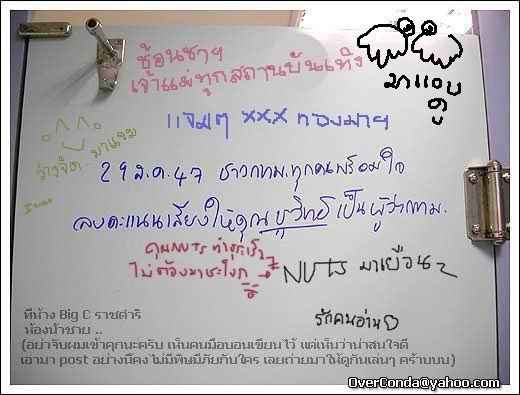 ช้อนชาฯ
เจ้าแม่ทุกสถานบันเทิง
มาแอบ
ดู
แจมๆ xxx ทองมาฯ
ว่างจัด... มาแจม
29 ส.ค. 47 ชาวกทม. ทุกคนพร้อมใจ
ลงคะแนนเสียงให้คุณ ชูวิทย์ เป็นผู้ว่ากทม.
คุณNuts ทำธุระเร็วๆ
ไม่ต้องมาชะโงก
NUTS มาเยือน~
รักคนอ่าน
ที่ห้าง Big C ราชดำริ
ห้องน้ำชาย ..
(อย่าจับผมเข้าคุกนะครับ เห็นคนมือบอนเขียนไว้ แต่เห็นว่าน่าสนใจดี
เอามา post อย่างนี้คงไม่มีพิษมีภัยกับใคร เลยถ่ายมาให้ดูกันเล่นๆ คร้าบบบ)
OverConda@yahoo.com